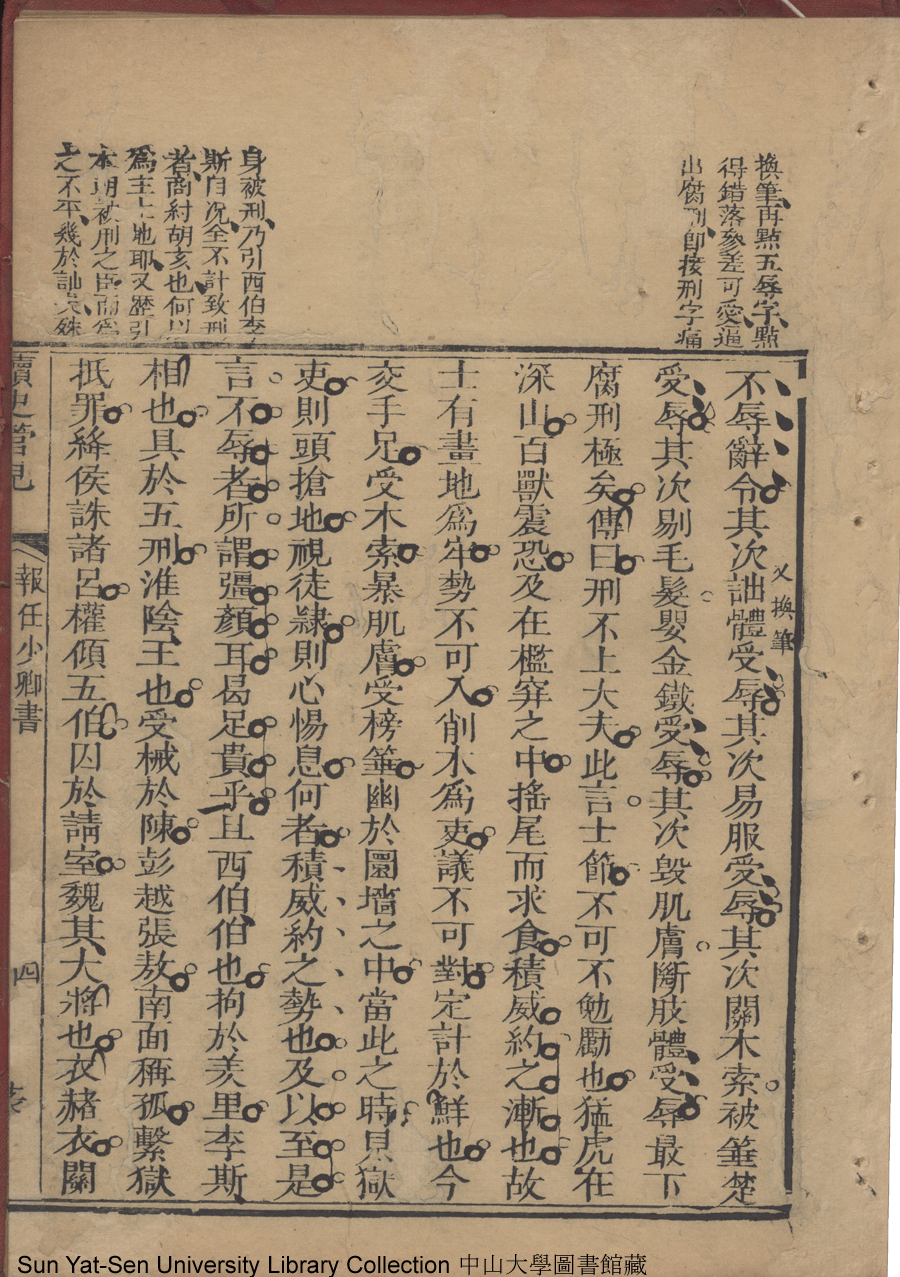 換筆再點五辱字點
得錯落參差可愛逼
出腐刑即接刑字痛
身被刑乃引西伯李
斯自况全不計致刑
者商紂胡亥也何以
爲主上地耶又歷引
本朝被刑之臣而爲
之不平幾於訕
不辱辭令其次詘體受辱其次易服受辱其次關木索被箠楚
又換筆
受辱其次剔毛髮嬰金鐵受辱其次毀肌膚斷肢體受辱最下
腐刑極矣傳曰刑不上大夫此言士節不可不勉勵也猛虎在
深山百獸震恐及在檻穽之中搖尾而求食積威約之漸也故
士有畫地爲牢勢不可入削木爲吏議不可對定計於鮮也今
交手足受木索暴肌膚受榜箠幽於圜墻之中當此之時見獄
吏則頭搶地視徒隸則心惕息何者積威約之勢也及以至是
言不辱者所謂彊顏耳曷足貴乎且西伯伯也拘於羑里李斯
相也具於五刑淮陰王也受械於陳彭越張敖南面稱孤繫獄
抵罪絳侯誅諸呂權傾五伯囚於請室魏其大將也衣赭衣關
讀史管見
報任少卿書
四